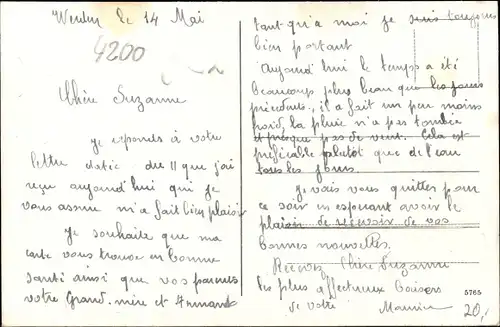 Werden le 14 Mai
4200
Chère Suzanne
je reponds à votre
lettre datée du 11 que j'ai
reçu aujourd'hui qui je
vous assure m'a fait bien plaisir
Je souhaite que ma
carte vous trouve en bonne
santé ainsi que vos parents
votre Grand-mère et Armand
tant qu'a moi je suis toujours
bien portant
Aujourd'hui le temps a été
beaucoup plus beau que les jours
précédents, il a fait un peu moins
froid, la pluie n'a pas tombée
et presque pas de vent. Cela est
préférable plutôt que de l'eau
tous les jours.
Je vais vous quitter pour
ce soir en espérant avoir le
plaisir de recevoir de vos
bonnes nouvelles.
Recevez Chère Suzanne
les plus affectueux baisers
de votre Maurice
5765
20,-